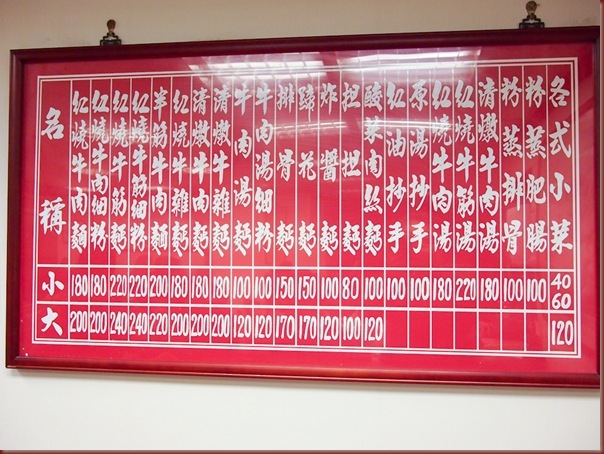 名稱 小 大
紅燒牛肉麵 180 200
紅燒牛肉細粉 180 200
紅燒牛筋麪 220 240
紅燒牛筋細粉 220 240
半筋牛肉麵 200 220
紅燒牛雜麪 180 200
清燉牛肉麪 180 200
清燉牛雜麪 180 200
牛肉湯麪 100 120
牛肉湯細粉 100 120
排骨麪 150 170
蹄花麪 150 170
炸醬麪 100 120
担担麪 80 100
酸菜肉絲麪 100 120
紅油抄手 100
原湯抄手 100
紅燒牛肉湯 180
紅燒牛筋湯 220
清燉牛肉湯 180
粉蒸排骨 100
粉蒸肥腸 100
各式小菜 40 60 120